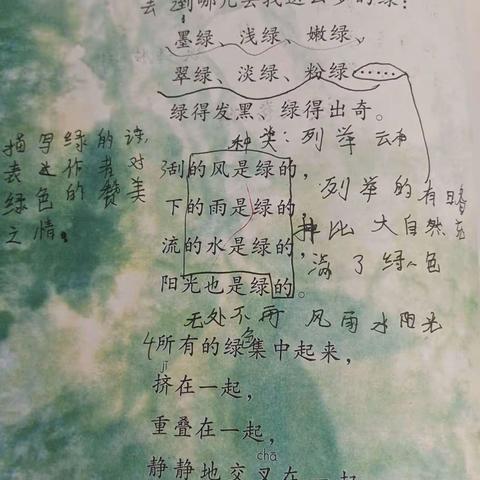 去 到哪儿去找这么多的绿:
墨绿、浅绿、嫩绿、
翠绿、淡绿、粉绿……
绿得发黑、绿得出奇。
种类:列举
描写绿的诗,
表达作者对
绿色的赞美
之情。
3刮的风是绿的,
下的雨是绿的,
流的水是绿的,
阳光也是绿的。
列举的有
排比 大自然充
满了绿色
无处不再 风雨水阳光
4所有的绿集中起来,
色
jǐ
挤在一起,
重叠在一起,
chā
静静地交叉在一起